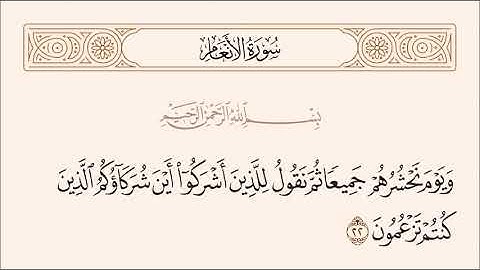 سُورَةُ الأَنْعَام
بِسْمِ اللَّهِ الرَّحْمَٰنِ الرَّحِيمِ
وَيَوْمَ نَحْشُرُهُمْ جَمِيعًا ثُمَّ نَقُولُ لِلَّذِينَ أَشْرَكُوٓا۟ أَيْنَ شُرَكَآؤُكُمُ ٱلَّذِينَ
كُنتُمْ تَزْعُمُونَ ٢٢